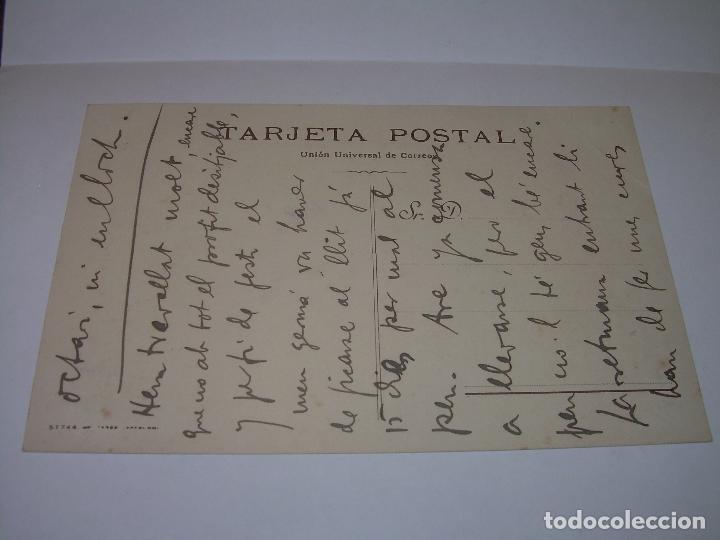 TARJETA POSTAL
Unión Universal de Correos
octavi, ni enlloch.
Hem treballat molt encare
que no ab tot el profit desitjable,
y per fi de festa el
meu germá va haver
de ficarse al llit fá
15 dies per mal al
peu. Are ya comensa
a llevarse, pero el
peu no 'l té gens bé encare.
La setmana entrant li
han de fer unes cures
todocoleccion